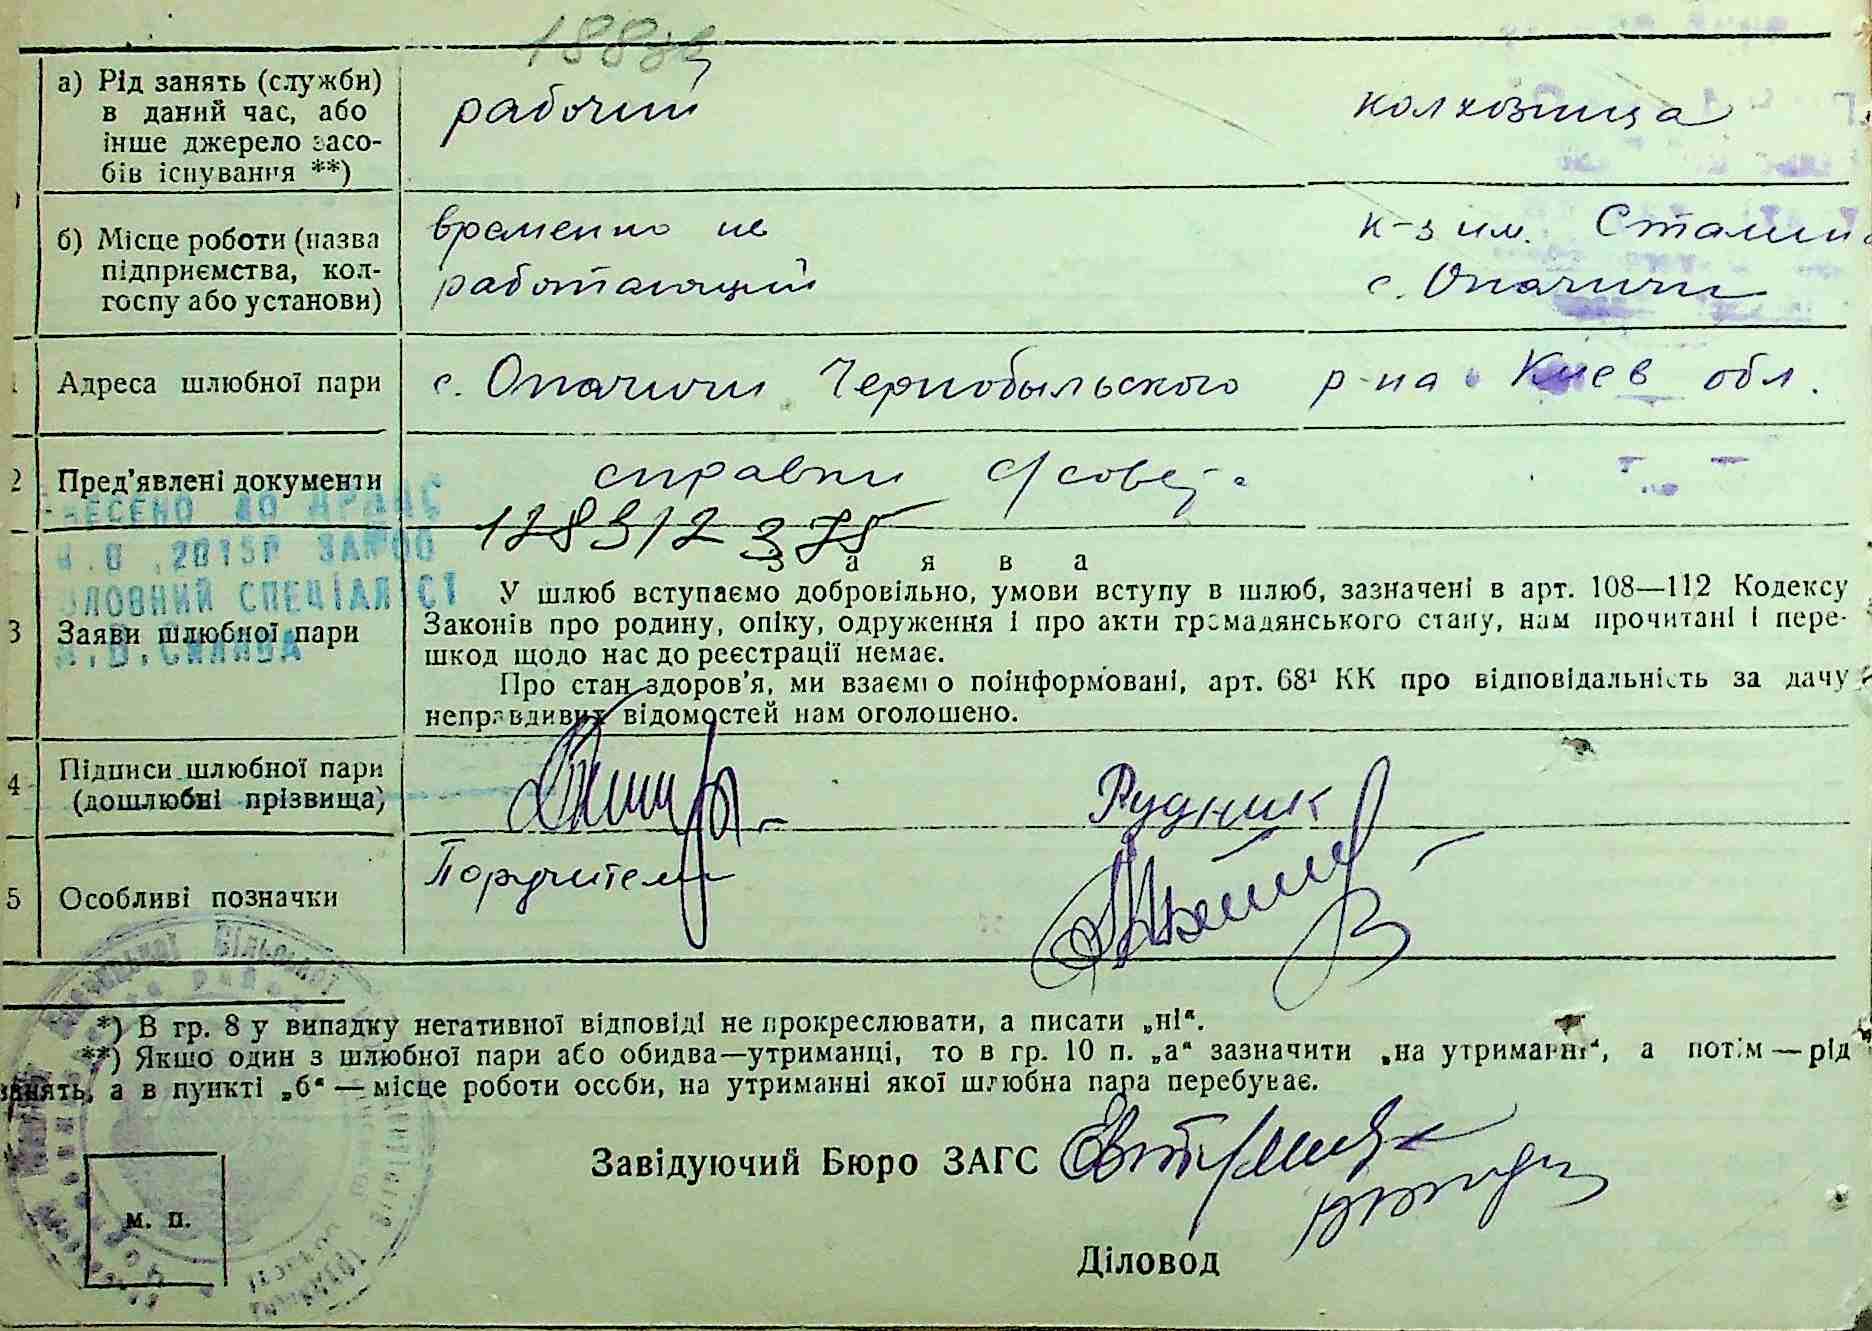 а) Рід занять (служби)
в даний час, або
інше джерело засо-
бів існування **)
рабочий
колхозница
б) Місце роботи (назва
підприємства, кол-
госпу або установи)
временно не
работающий
к-з им. Сталина
с. Опачичи
Адреса шлюбної пари
с. Опачичи Чернобыльского р-на Киев обл.
2 Пред’явлені документи
справки с/совета
ВНЕСЕНО ДО ДРАЦС
2015Р
ГОЛОВНИЙ СПЕЦІАЛІСТ
Заява
3 Заяви шлюбної пари
У шлюб вступаємо добровільно, умови вступу в шлюб, зазначені в арт. 108—112 Кодексу
Законів про родину, опіку, одруження і про акти громадянського стану, нам прочитані і пере-
шкод щодо нас до реєстрації немає.
Про стан здоров’я, ми взаємно поінформовані, арт. 68¹ КК про відповідальність за дачу
неправдивих відомостей нам оголошено.
4 Підписи шлюбної пари
(дошлюбні прізвища)
Рудник
5 Особливі позначки
Поручители
*) В гр. 8 у випадку негативної відповіді не прокреслювати, а писати „ні“.
**) Якщо один з шлюбної пари або обидва—утриманці, то в гр. 10 п. „а“ зазначити „на утриманні“, а потім—рід
занять, а в пункті „б“—місце роботи особи, на утриманні якої шлюбна пара перебуває.
Завідуючий Бюро ЗАГС
м. п.
Діловод